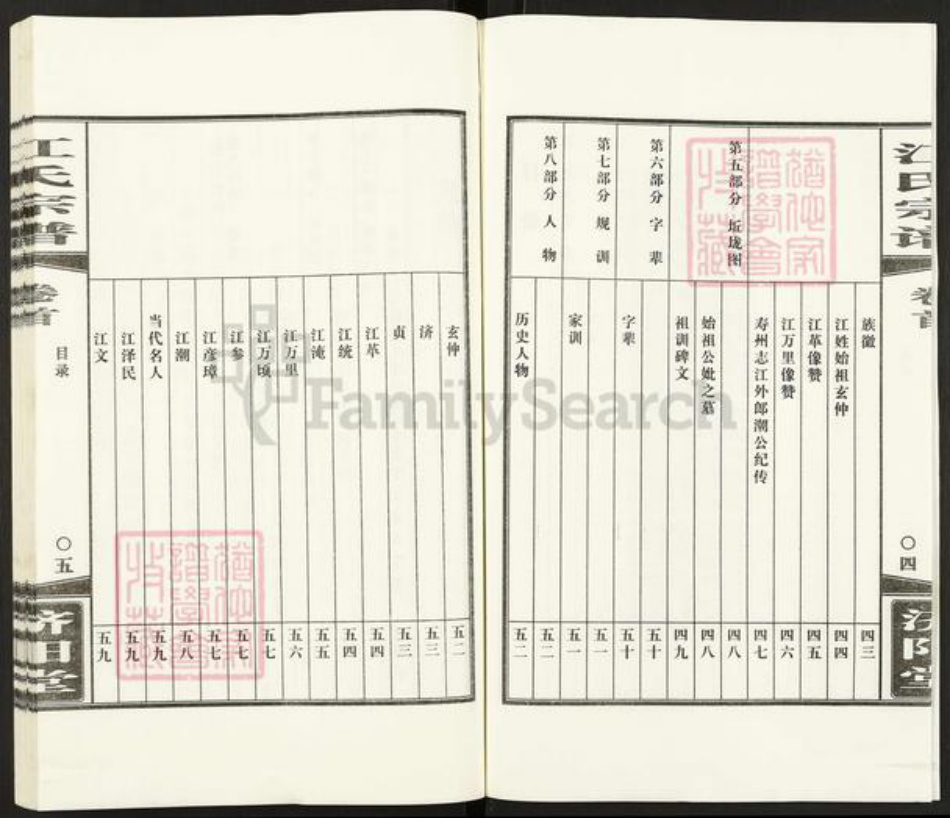 江氏宗谱
卷首
〇四
济阳堂
族徽 四三
江姓始祖玄仲 四四
江革像赞 四五
江万里像赞 四六
寿州志江外郎潮公纪传 四七
第五部分 坵垅图 四八
始祖公妣之墓 四八
祖训碑文 四九
第六部分 字辈 五十
字辈 五十
第七部分 规训 五一
家训 五一
第八部分 人物 五二
历史人物 五二
玄仲 五二
济 五三
贞 五三
江革 五四
江统 五四
江淹 五五
江万里 五六
江万顷 五七
江参 五七
江彦璋 五七
江潮 五八
当代名人 五九
江泽民 五九
江文 五九
江氏宗谱
卷首
目录
〇五
济阳堂
FamilySearch